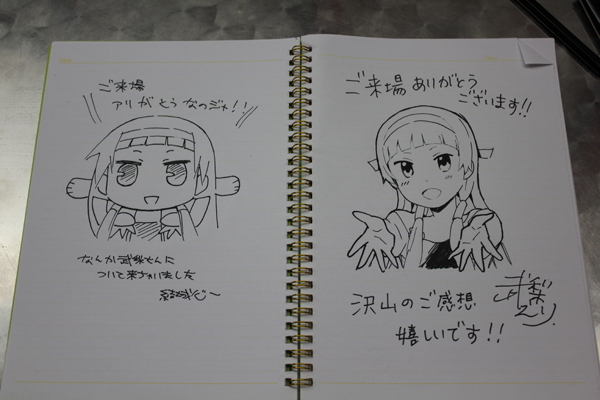 ご来場
アリガとうなのジャ!!
なんか武梨さんに
ついて来ちゃいました
ご来場ありがとう
ございます!!
沢山のご感想
嬉しいです!!
武梨えり